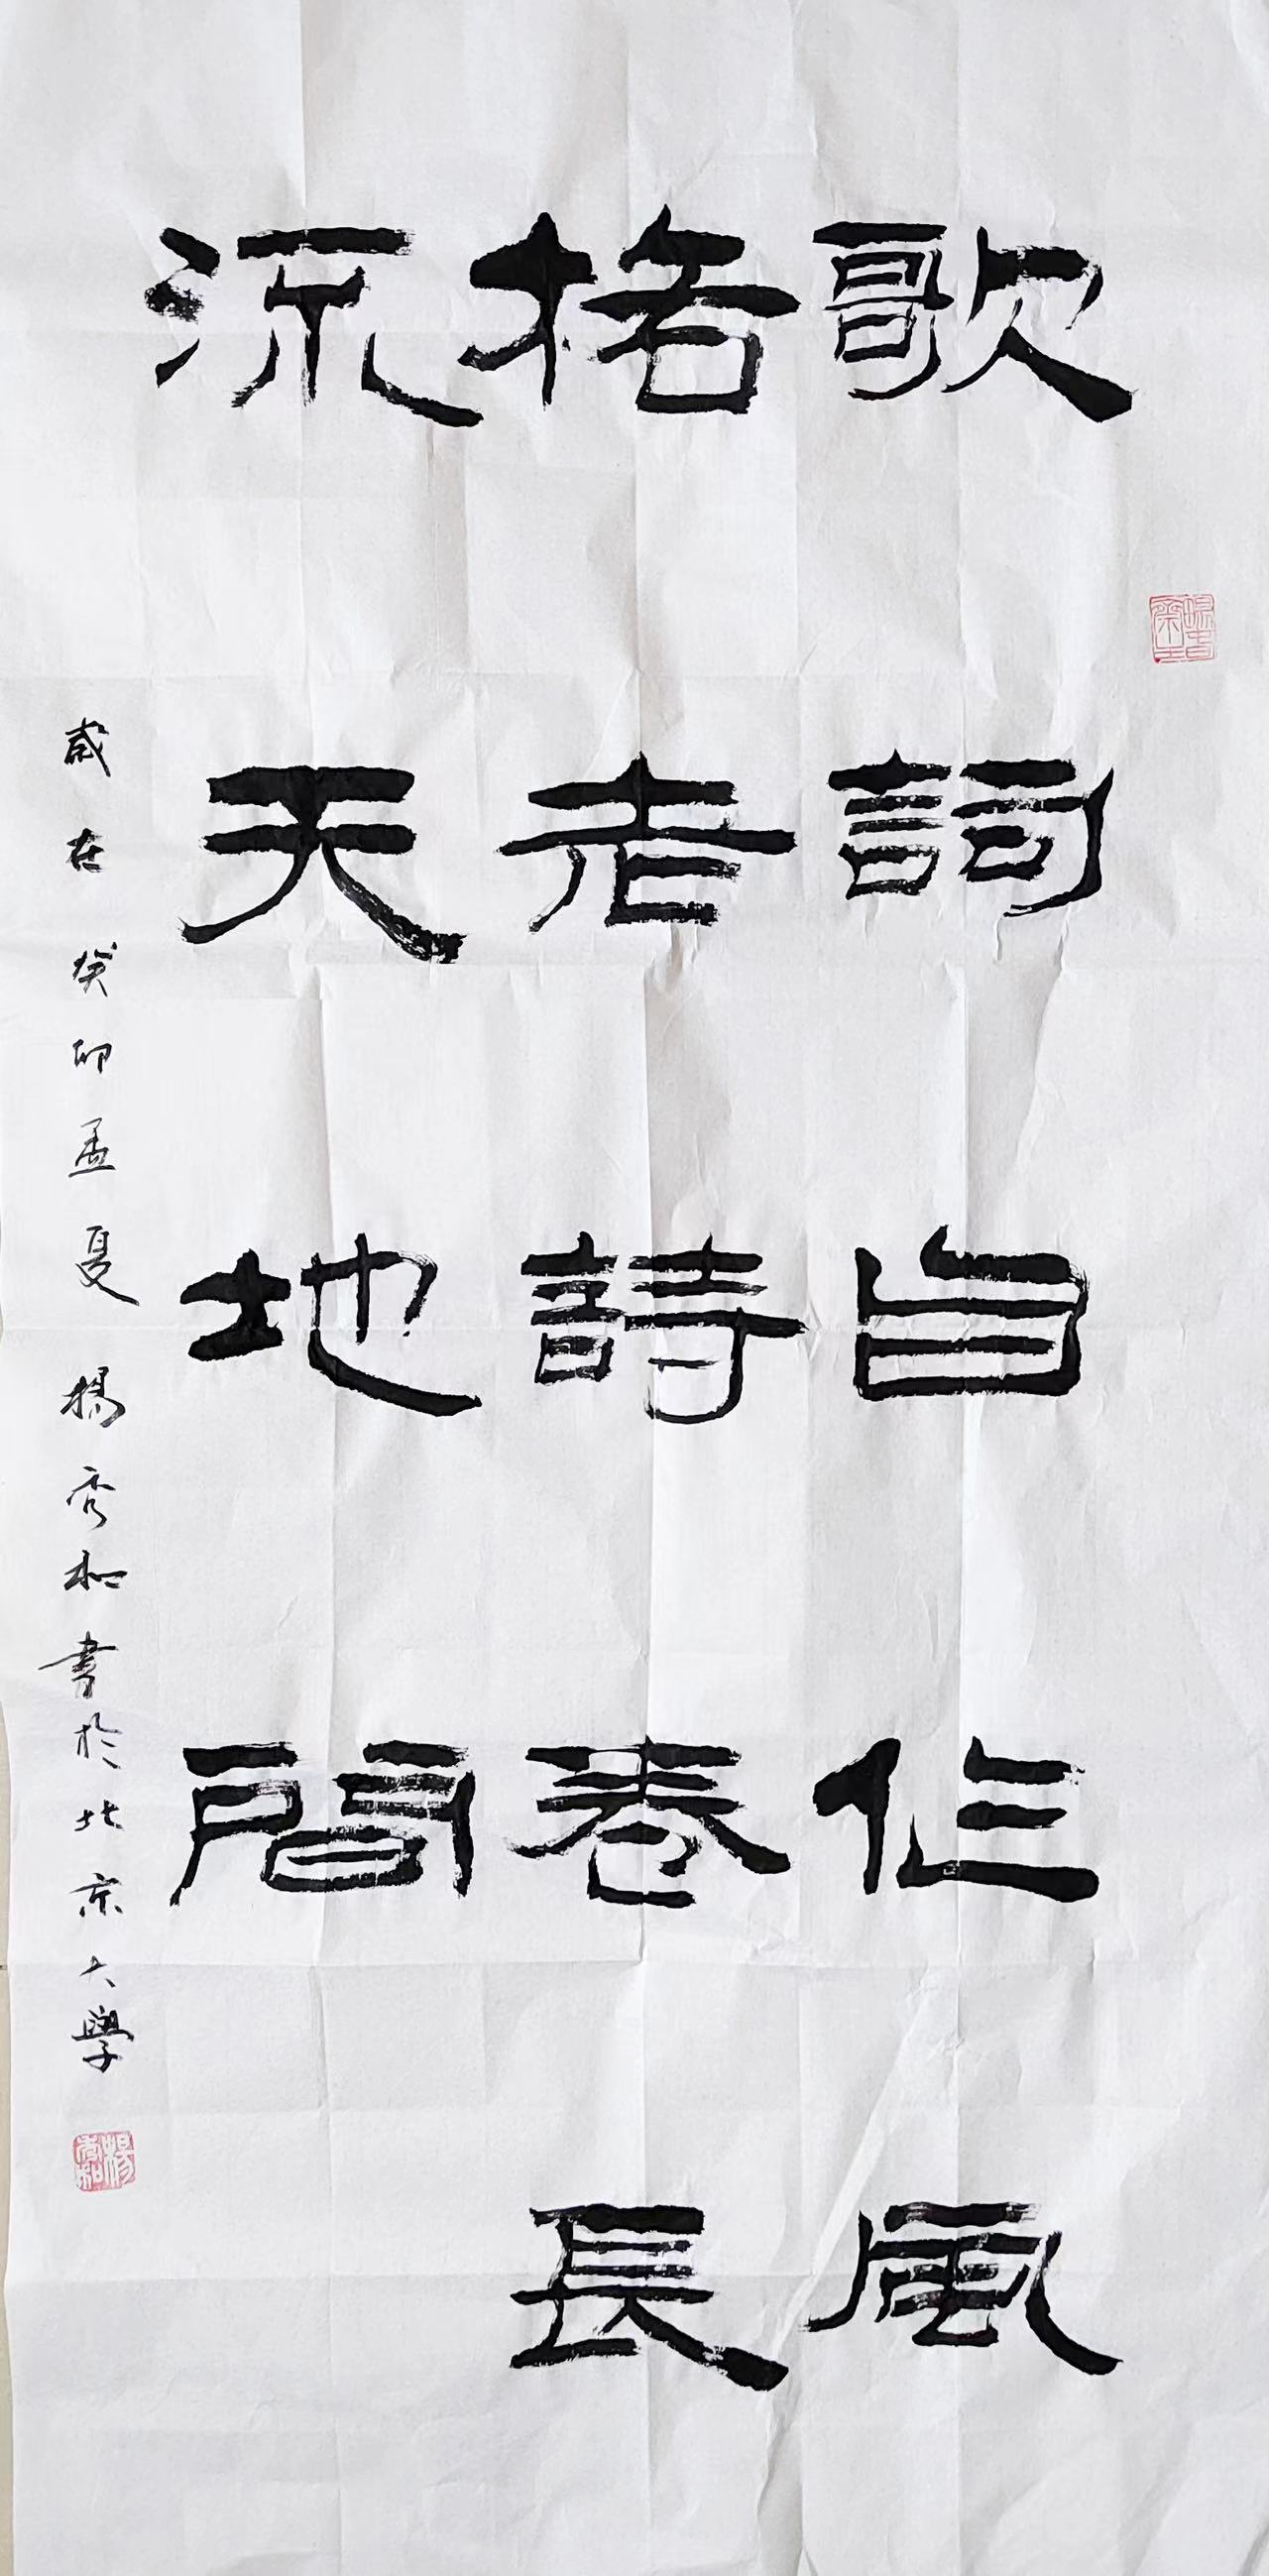 歌詞自作風
格老詩卷長
流天地間
歲在癸卯孟夏 楊秀和書於北京大學
楊秀和